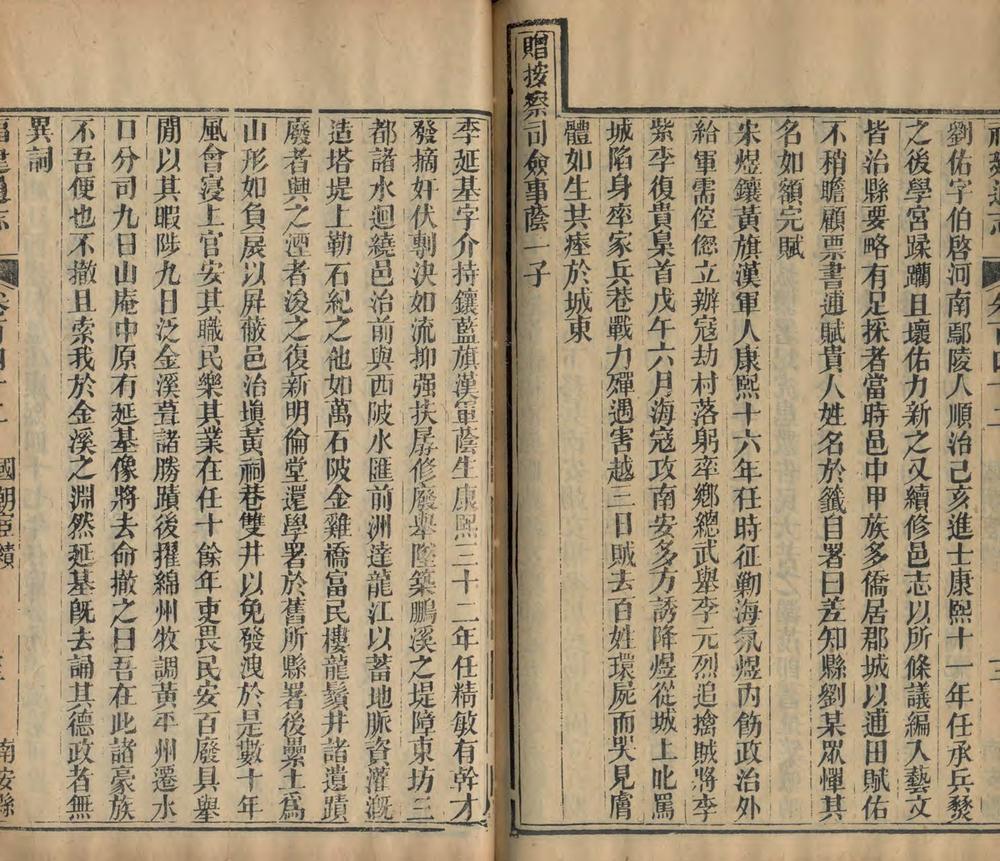 劉佑字伯啓河南鄢陵人順治己亥進士康熙十一年任承兵燹
之後學宮蹂躪且壞佑力新之又續修邑志以所條議編入藝文
皆治縣要略有足採者當時邑中甲族多僑居郡城以逋田賦佑
不稍瞻顧票書逋賦貴人姓名於籤自署曰差知縣劉某眾憚其
名如額完賦
宋煜鑲黃旗漢軍人康熙十六年任時征勦海氛煜內飭政治外
給軍需倥傯立辦寇劫村落躬率鄉總武舉李元烈追擒賊將李
紫李復貴梟首戊午六月海寇攻南安多方誘降煜從城上叱罵
城陷身率家兵巷戰力殫遇害越三日賊去百姓環屍而哭見膚
體如生共瘞於城東
贈按察司僉事蔭一子
李延基字介持鑲藍旗漢軍蔭生康熙三十二年任精敏有幹才
發摘奸伏剸決如流抑强扶孱修廢舉墜築鵬溪之堤障東坊三
都諸水迴繞邑治前與西陂水匯前洲達龍江以蓄地脈資灌漑
造塔堤上勒石紀之他如萬石陂金雞橋富民樓龍鬚井諸遺蹟
廢者興之湮者浚之復新明倫堂還學署於舊所縣署後壘土爲
山形如負扆以屏蔽邑治塡黃祠巷雙井以免發洩於是數十年
風會寖上官安其職民樂其業在任十餘年吏畏民安百廢具舉
閒以其暇陟九日泛金溪葺諸勝蹟後擢綿州牧調黃平州遷水
口分司九日山庵中原有延基像將去命撤之曰吾在此諸豪族
不吾便也不撤且索我於金溪之淵然延基旣去誦其德政者無
異詞
國朝宦績
南安縣